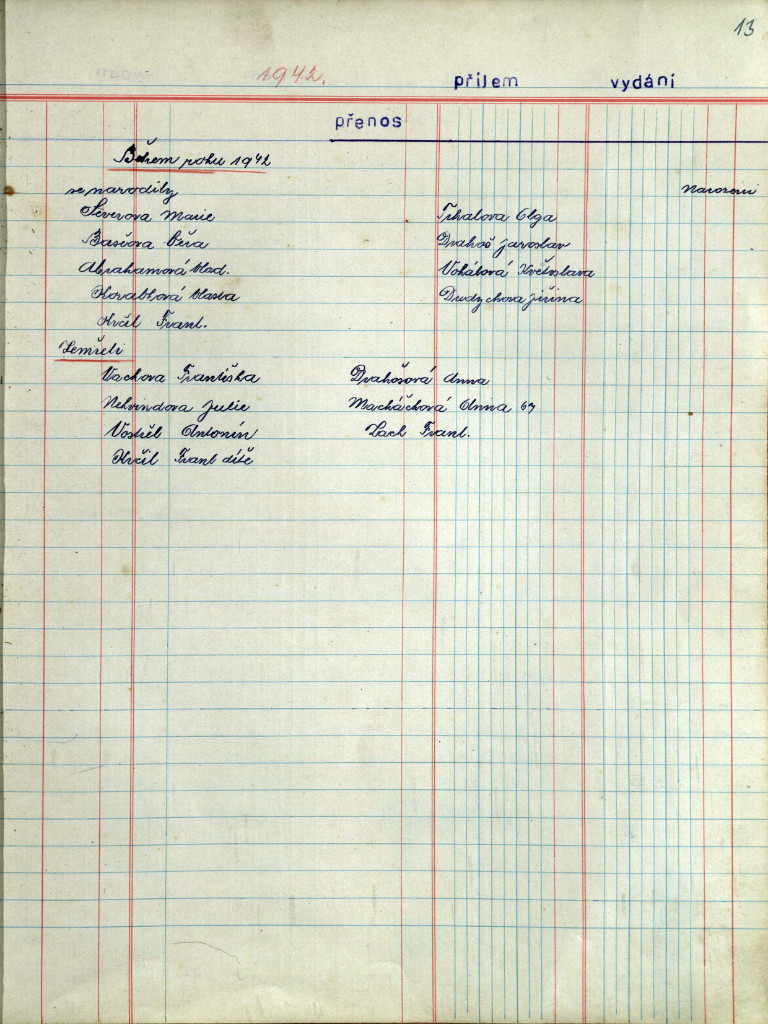 13
1942.
příjem vydání
přenos
Během roku 1942
se narodily Narození
Severova Marie Trhalova Olga
Bašćova Věra Drahoš Jaroslav
Abrahamová Vlad. Vohátová Květoslava
Korabková Vlasta Dudychova Jiřina
Kvčil Frant.
Zemřeli
Vachova Františka Drahošová Anna
Nekvindova Julie Macháčková Anna 67
Vostřel Antonín Lach Frant.
Kvčil Frant dítě